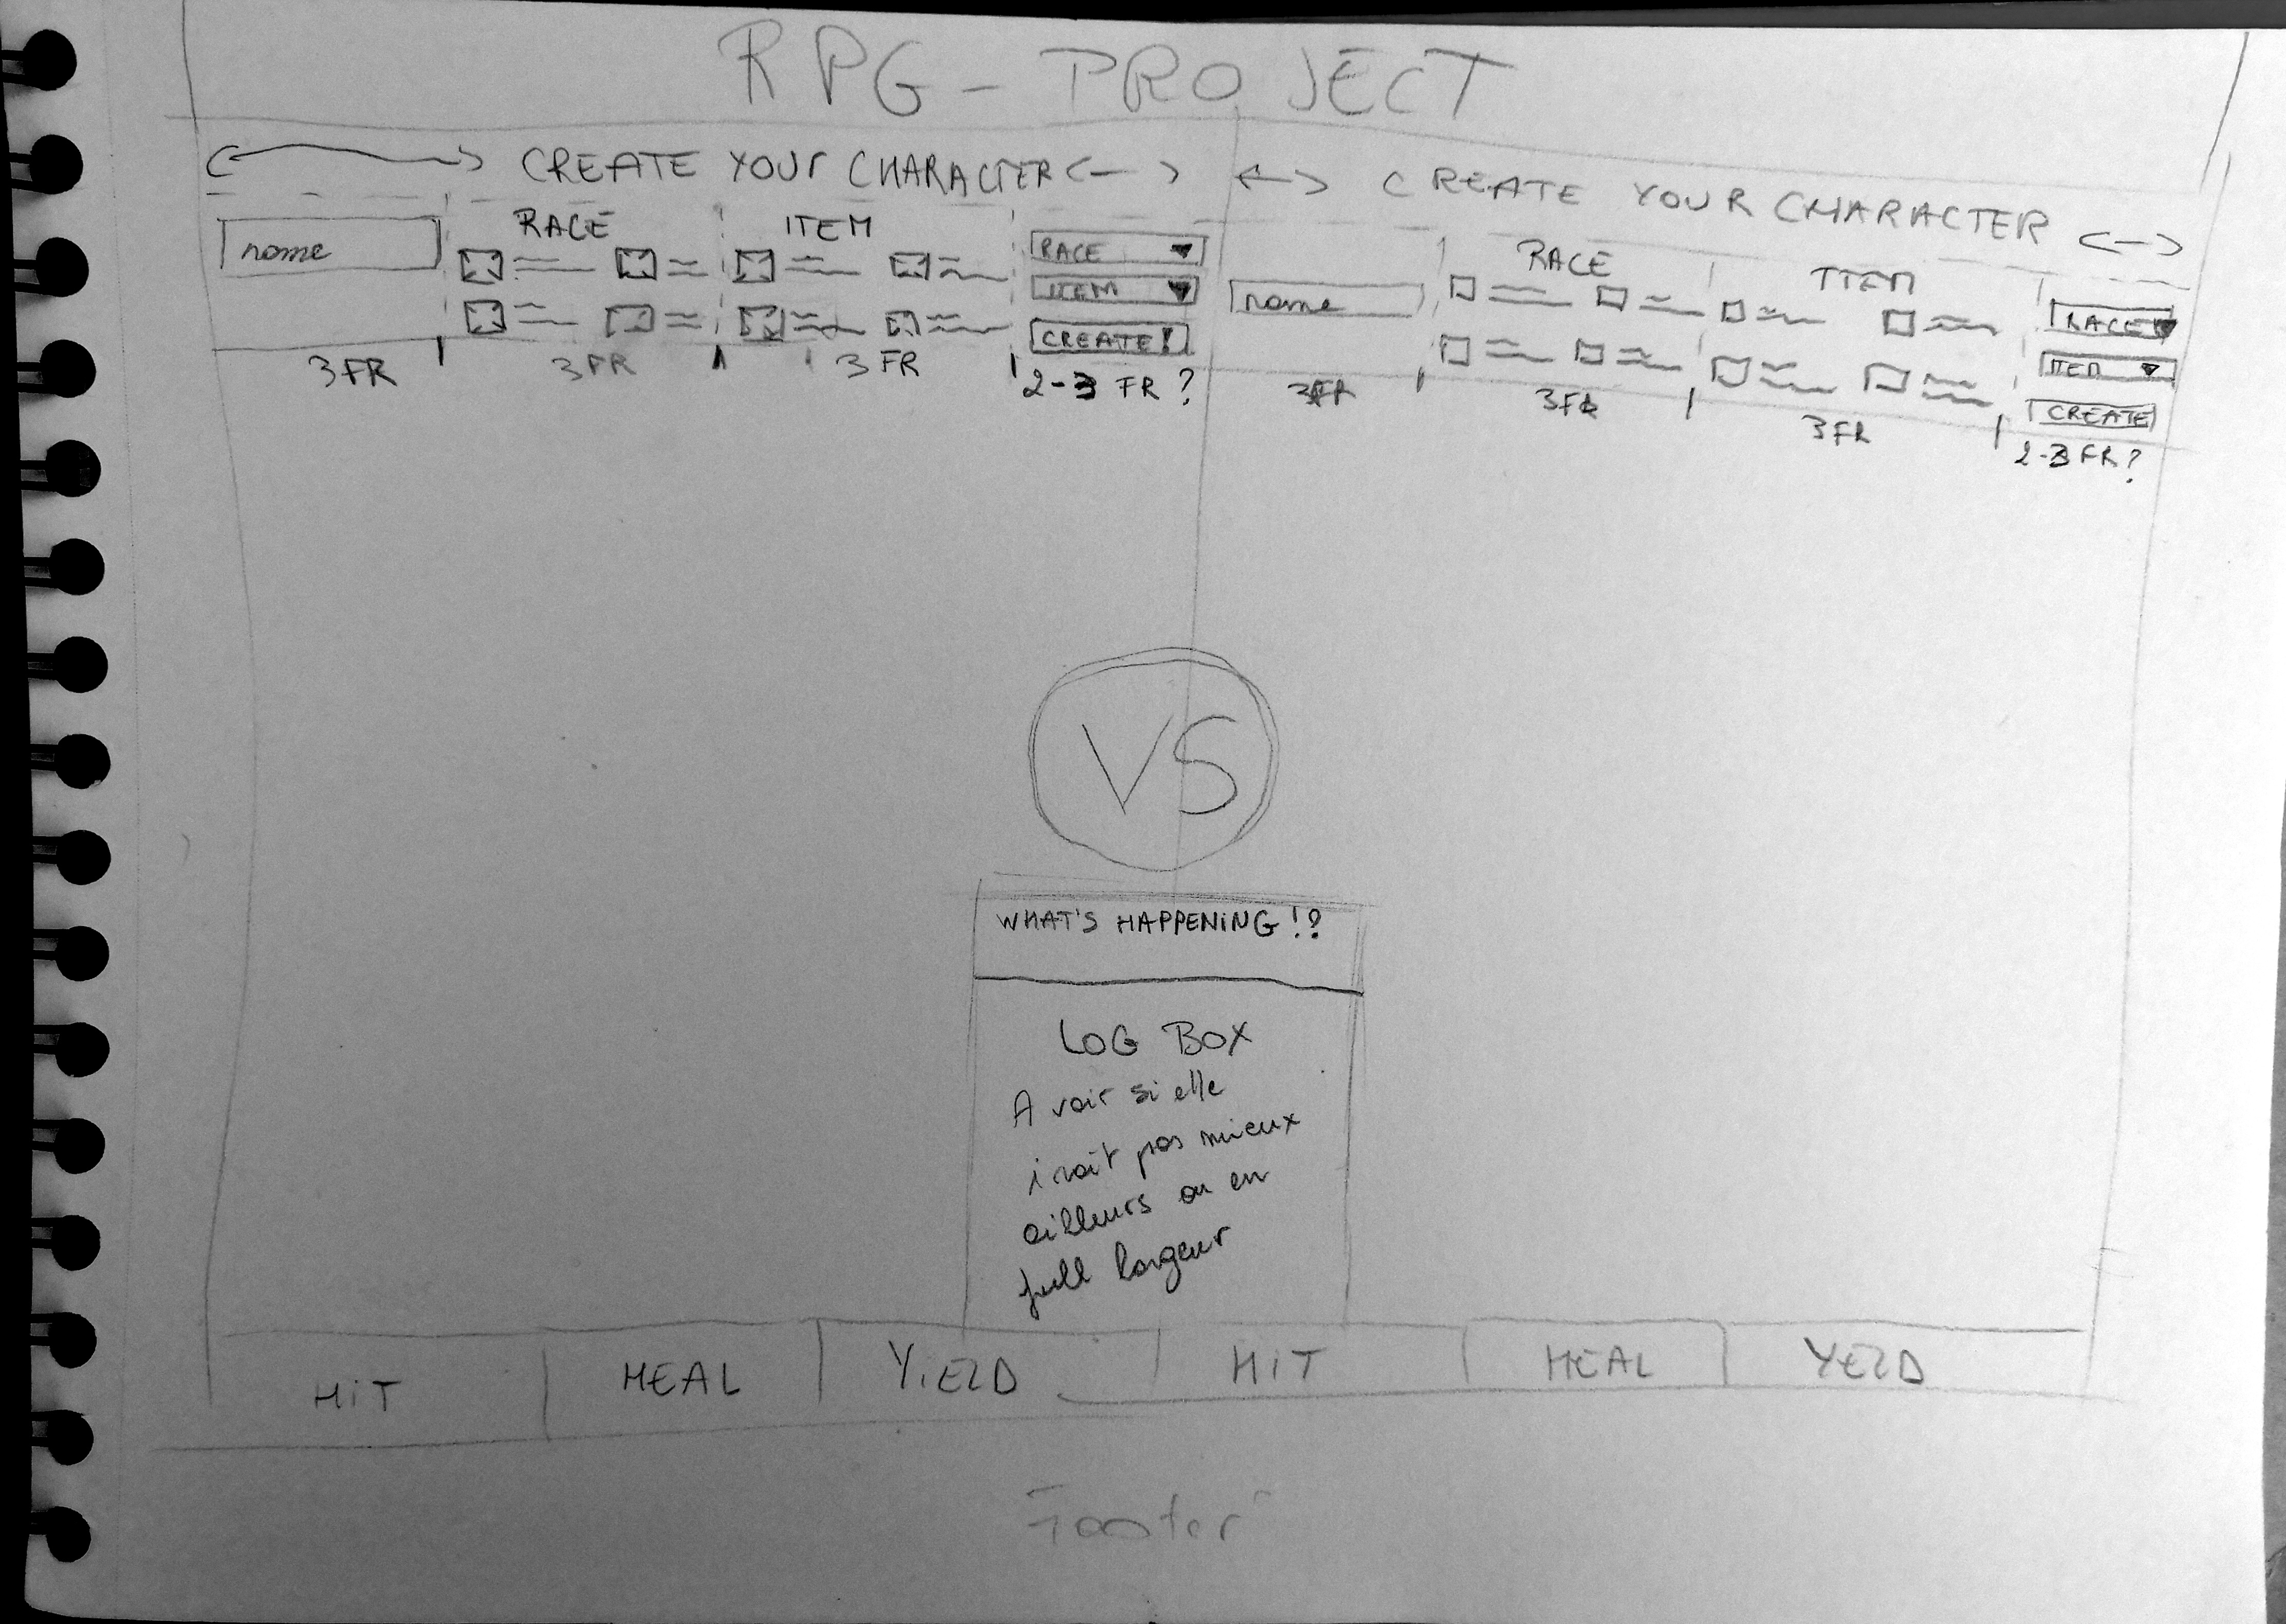 RPG - PROJECT
CREATE YOUR CHARACTER
name
RACE
ITEM
RACE
ITEM
CREATE!
3 FR
3 FR
3 FR
2-3 FR ?
CREATE YOUR CHARACTER
name
RACE
ITEM
RACE
ITEM
CREATE
3FR
3FR
3FR
2-3 FR?
VS
WHAT'S HAPPENING !?
LOG BOX
A voir si elle
irait pas mieux
ailleurs ou en
full largeur
HiT
HEAL
YiELD
HiT
HEAL
YELD
Footer